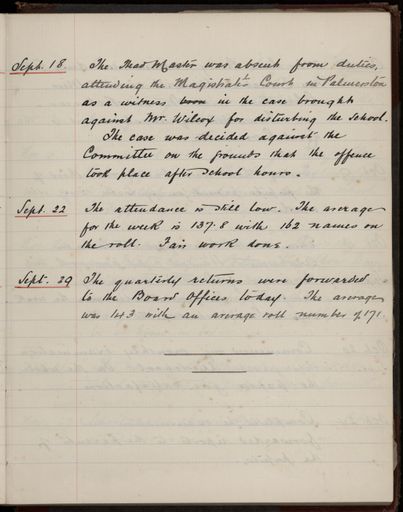 Sept. 18 The Head Master was absent from duties,
attending the Magistrate's Court in Palmerston
as a witness in the case brought
against Mr. Wilcox for disturbing the School.
The case was decided against the
Committee on the grounds that the offence
took place after school hours.
Sept. 22 The attendance is still low. The average
for the week is 137.8 with 162 names on
the roll. Fair work done.
Sept. 29 The quarterly returns were forwarded
to the Board Offices today. The average
was 143 with an average roll number of 171.